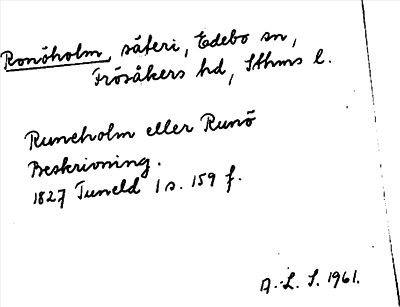 Ronöholm, säteri, Edebo sn,
Frösåkers hd, Sthms l.
Runeholm eller Runö
Beskrivning.
1827 Tuneld 1 s. 159 f.
A. L. S. 1961.